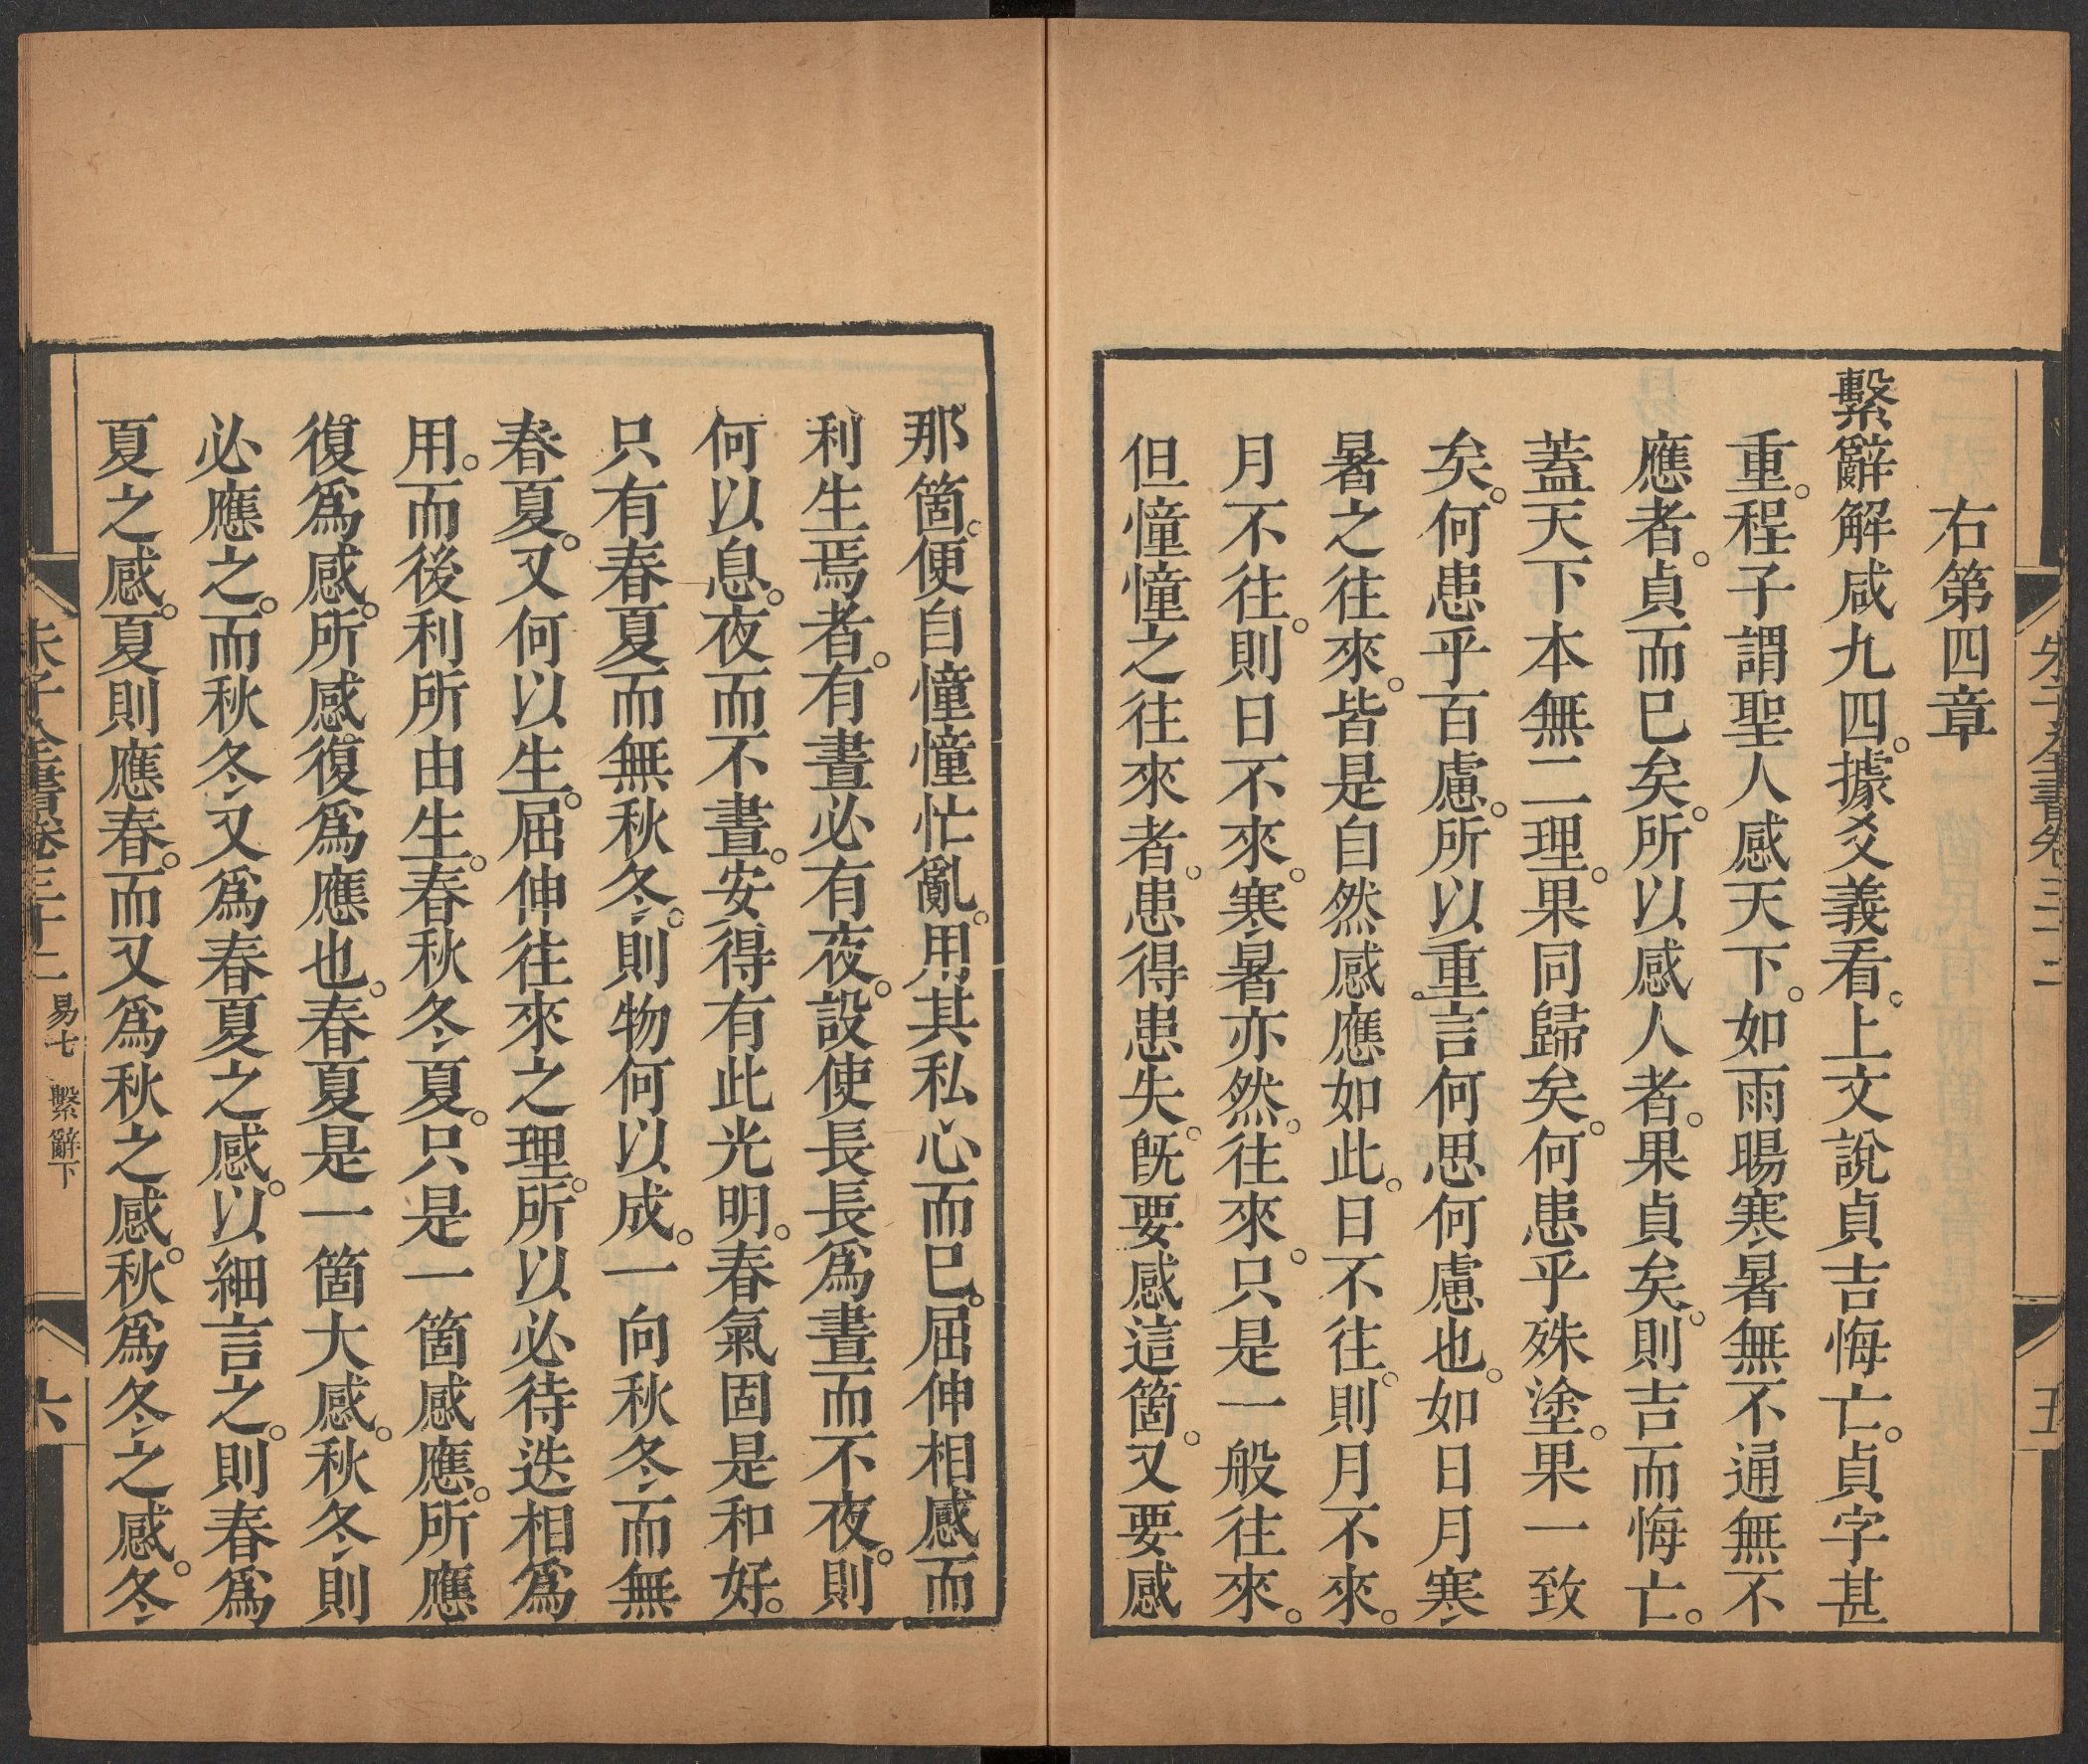 朱子全書卷三十二
五
右第四章
繫辭解咸九四。據爻義看。上文說貞吉悔亡。貞字甚
重。程子謂聖人感天下。如雨暘寒暑無不通無不
應者。貞而已矣。所以感人者。果貞矣。則吉而悔亡。
蓋天下本無二理。果同歸矣。何患乎殊塗。果一致
矣。何患乎百慮。所以重言何思何慮也。如日月寒
暑之往來。皆是自然感應如此。日不往。則月不來。
月不往。則日不來。寒暑亦然。往來。只是一般往來。
但憧憧之往來者。患得患失。旣要感這箇。又要感
那箇。便自憧憧忙亂。用其私心而已。屈伸相感而
利生焉者。有晝必有夜。設使長長爲晝而不夜。則
何以息。夜而不晝。安得有此光明。春氣固是和好。
只有春夏而無秋冬。則物何以成。一向秋冬而無
春夏。又何以生。屈伸往來之理。所以必待迭相爲
用。而後利所由生。春秋冬夏。只是一箇感應。所應
復爲感。所感復爲應也。春夏是一箇大感。秋冬則
必應之。而秋冬又爲春夏之感。以細言之。則春爲
夏之感。夏則應春。而又爲秋之感。秋爲冬之感。冬
朱子全書卷三十二 易七 繫辭下
六